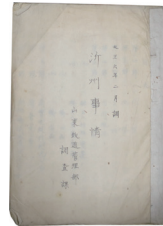 大正九年一月調
沂州事情
山東鉄道管理部
調査課